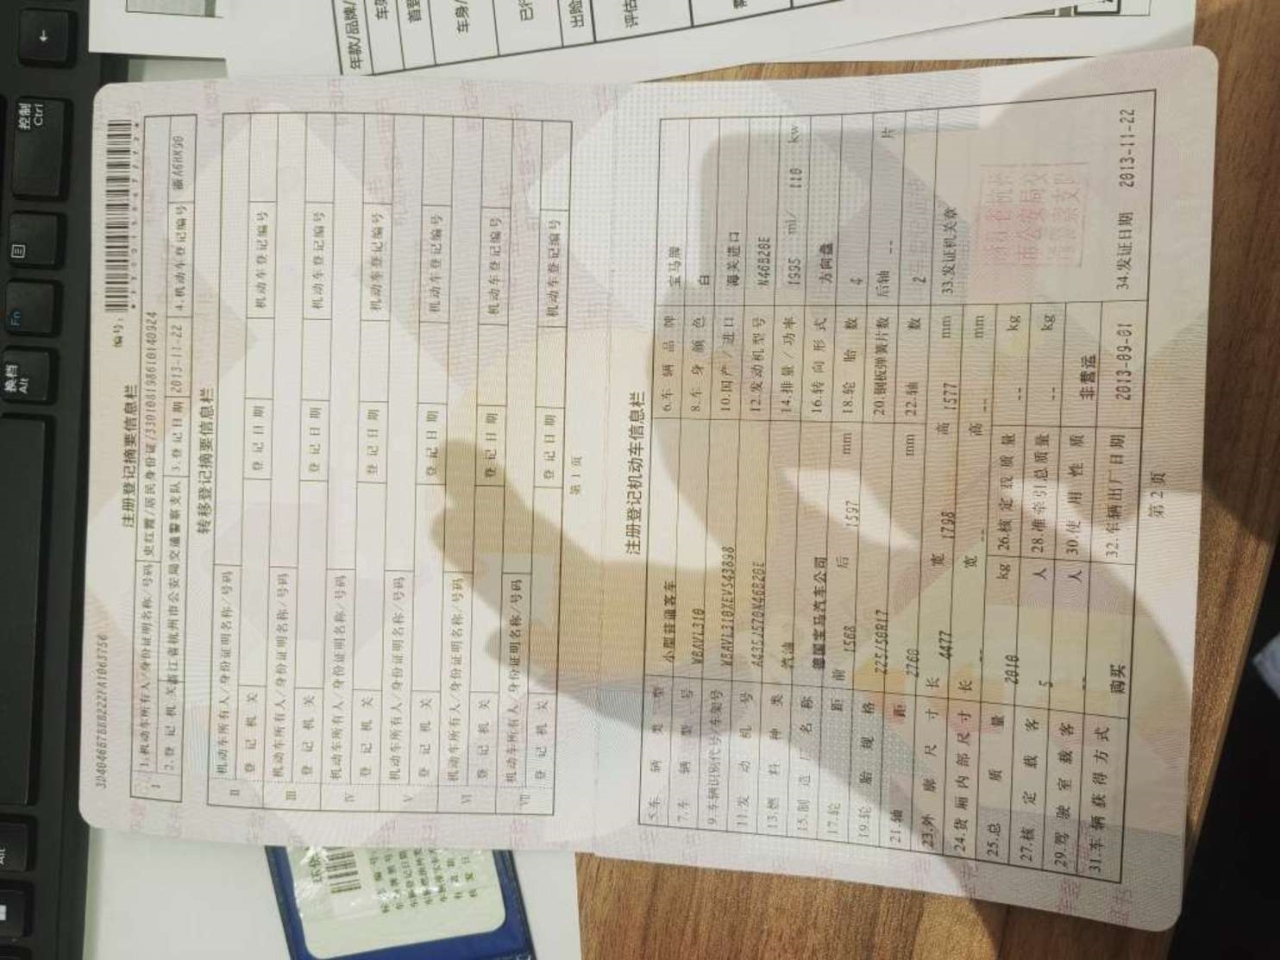 3D40466B7BEB222FA1063756
编号:
注册登记摘要信息栏
I
1.机动车所有人/身份证明名称/号码 史红霞/居民身份证/330108198610140924
2.登记机关 浙江省杭州市公安局交通警察支队 3.登记日期 2013-11-22 4.机动车登记编号
转移登记摘要信息栏
II 机动车所有人/身份证明名称/号码
登记机关 登记日期 机动车登记编号
III 机动车所有人/身份证明名称/号码
登记机关 登记日期 机动车登记编号
IV 机动车所有人/身份证明名称/号码
登记机关 登记日期 机动车登记编号
V 机动车所有人/身份证明名称/号码
登记机关 登记日期 机动车登记编号
VI 机动车所有人/身份证明名称/号码
登记机关 登记日期 机动车登记编号
VII 机动车所有人/身份证明名称/号码
登记机关 登记日期 机动车登记编号
第 1 页
注册登记机动车信息栏
5.车辆类型 小型普通客车 6.车辆品牌 宝马牌
7.车辆型号 WBAVL310 8.车身颜色 白
9.车辆识别代号/车架号 WBAVL310XEVS43898 10.国产/进口 海关进口
11.发动机号 A435J570N46B20E 12.发动机型号 N46B20E
13.燃料种类 汽油 14.排量/功率 1995 ml/ 110 kw
15.制造厂名称 德国宝马汽车公司 16.转向形式 方向盘
17.轮距 前 1568 后 1597 mm 18.轮胎数 4
19.轮胎规格 225/50R17 20.钢板弹簧片数 后轴 -- 片
21.轴距 2760 mm 22.轴数 2
23.外廓尺寸 长 4477 宽 1798 高 1577 mm 33.发证机关章
24.货厢内部尺寸 长 -- 宽 -- 高 -- mm
25.总质量 2010 kg 26.核定载质量 -- kg
27.核定载客 5 人 28.准牵引总质量 -- kg
29.驾驶室载客 -- 人 30.使用性质 非营运
31.车辆获得方式 购买 32.车辆出厂日期 2013-09-01 34.发证日期 2013-11-22
第 2 页
年款/品牌/
控制
Ctrl
Fn
换档
Alt
Alt